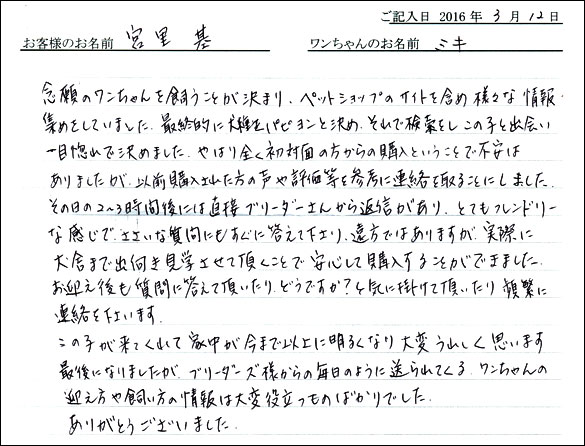 ご記入日 2016年 3月 12日
お客様のお名前 宮里 基 ワンちゃんのお名前 ミキ
念願のワンちゃんを飼うことが決まり、ペットショップのサイトを含め様々な情報
集めをしていました。最終的に犬種をパピヨンと決め、それで検索をしこの子と出会い
一目惚れで決めました。やはり全く初対面の方からの購入ということで不安は
ありましたが、以前購入された方の声や評価等を参考に連絡を取ることにしました。
その日の2~3時間後には直接ブリーダーさんから返信があり、とてもフレンドリー
な感じで、ささいな質問にもすぐに答えて下さり、遠方ではありますが、実際に
犬舎まで出向き見学させて頂くことで安心して購入することができました。
お迎え後も質問に答えて頂いたり、どうですか?と気に掛けて頂いたり頻繁に
連絡を下さいます。
この子が来てくれて家中が今まで以上に明るくなり大変うれしく思います
最後になりましたが、ブリーダーズ様からの毎日のように送られてくる、ワンちゃんの
迎え方や飼い方の情報は大変役立つものばかりでした。
ありがとうございました。